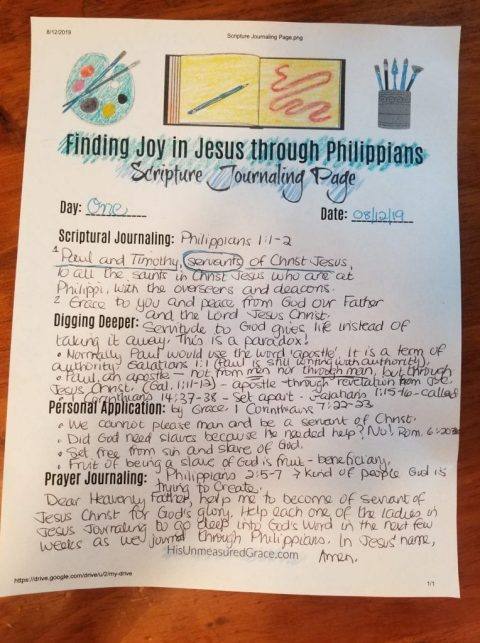 8/12/2019
Scripture Journaling Page.png
Finding Joy in Jesus through Philippians
Scripture Journaling Page
Day: One
Date: 08/12/19
Scriptural Journaling: Philippians 1:1-2
1 Paul and Timothy, servants of Christ Jesus,
To all the saints in Christ Jesus who are at
Philippi, with the overseers and deacons.
2 Grace to you and peace from God our Father
and the Lord Jesus Christ.
Digging Deeper: Servitude to God gives life instead of
taking it away. This is a paradox!
• Normally Paul would use the word 'apostle'. It is a term of
authority. Galatians 1:1 (Paul is still writing with authority).
• Paul, an apostle - not from men nor through man, but through
Jesus Christ. (Gal. 1:11-12) - apostle through revelation from
Corinthians 14:37-38 - Set apart - Galatians 1:15-16 - called
Personal Application: by Grace. 1 Corinthians 7:22-23
• We cannot please man and be a servant of Christ.
• Did God need slaves because he needed help? No! Rom.
• Set free from sin and slave of God.
• Fruit of being a slave of God is fruit - beneficiary.
Prayer Journaling: Philippians 2:5-7 → Kind of people God is
trying to create.
Dear Heavenly Father, help me to become of servant of
Jesus Christ for God's glory. Help each one of the ladies in
Jesus Journaling to go deep into God's Word in the next few
weeks as we journal through Philippians. In Jesus' name,
Amen.
HisUnmeasuredGrace.com
https://drive.google.com/drive/u/2/my-drive
1/1